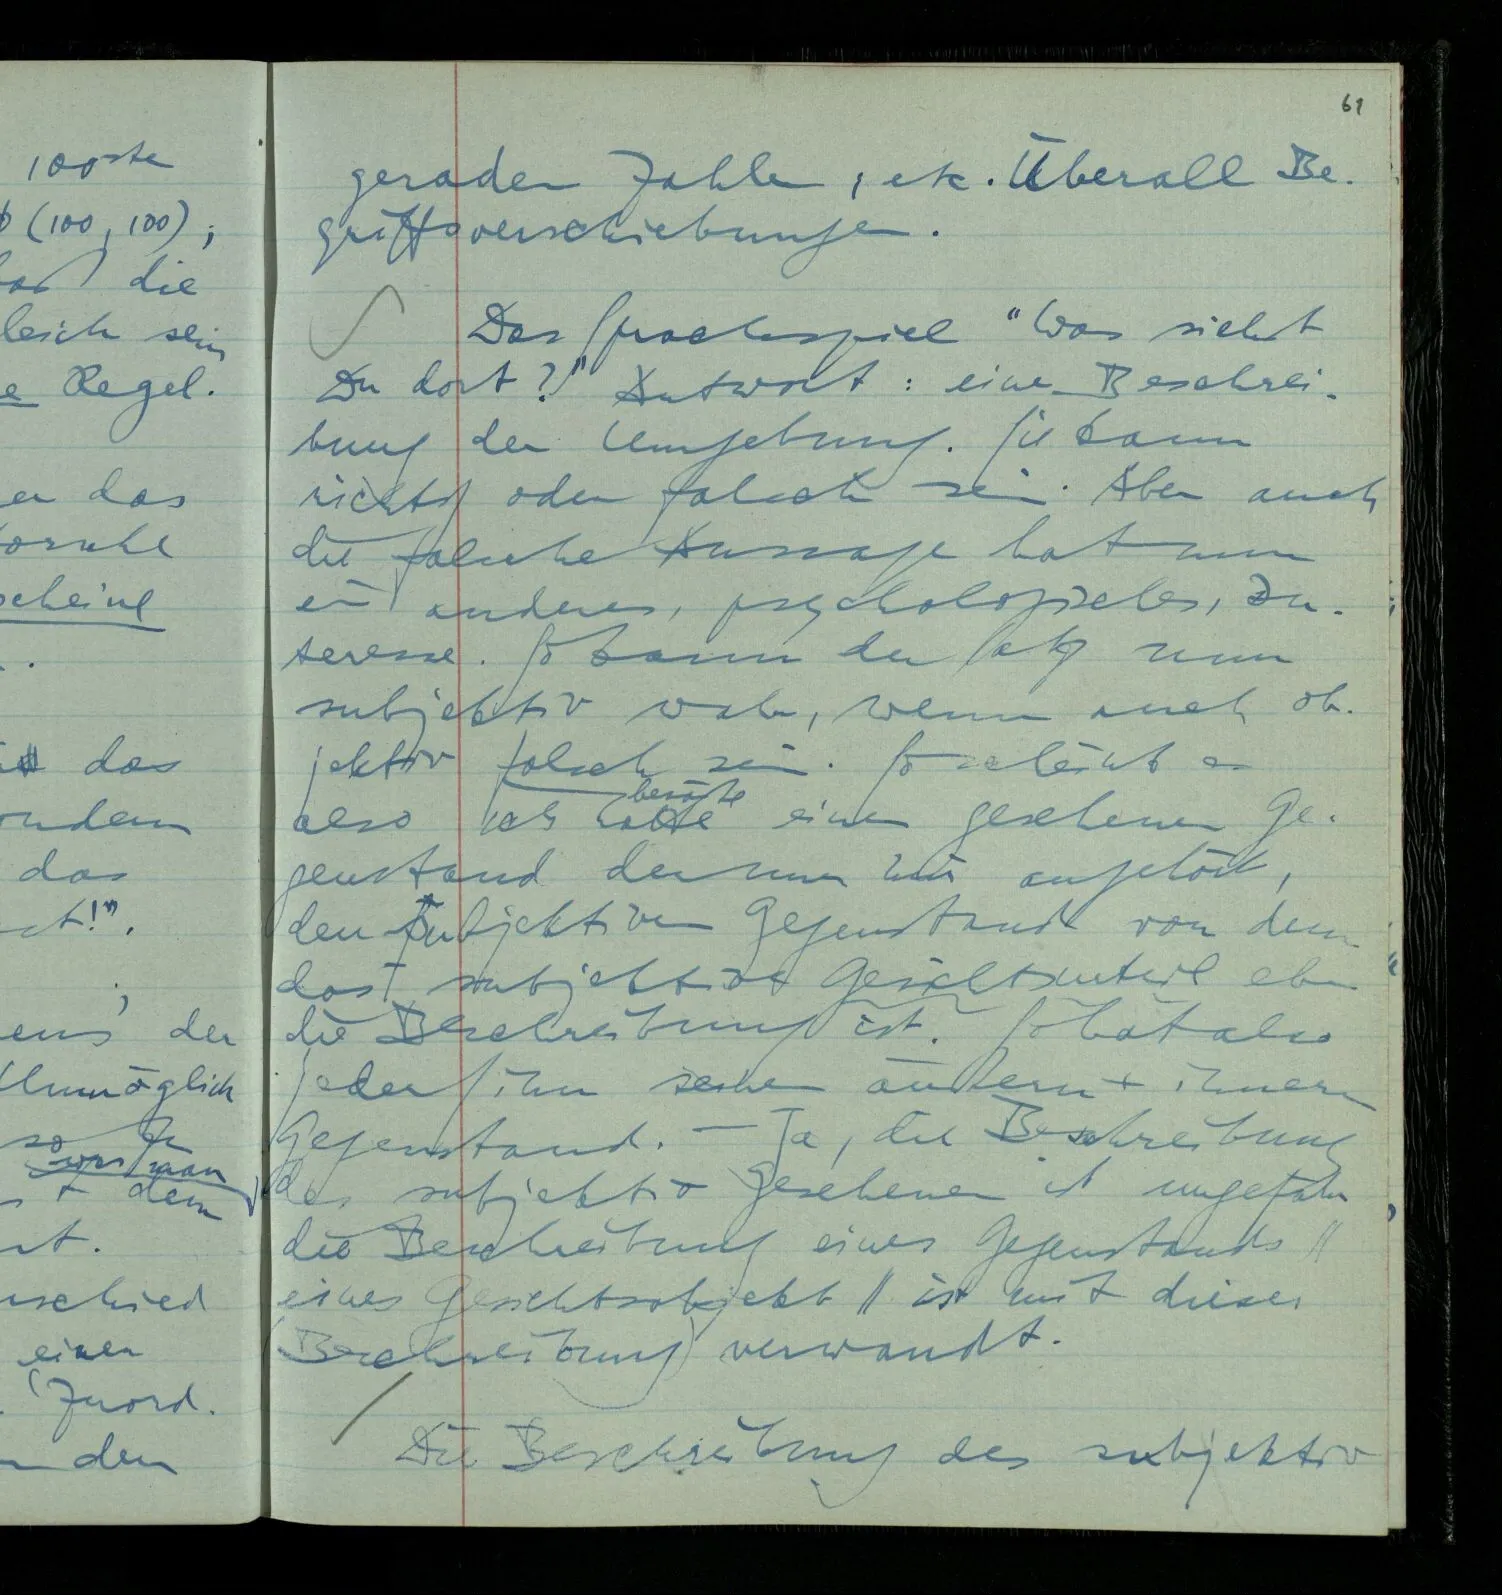 100ste
(100, 100);
die
leich sein
e Regel.
er das
scheint
das
ondern
das
ct!".
der
Unmöglich
so
was man
+ dem
nt.
rschied
einer
'Zuord-
den
61
geraden Zahlen, etc. Überall Be-
griffsverschiebungen.
Das Sprachspiel "Was siehst
Du dort?" Antwort: eine Beschrei-
bung der Umgebung. Sie kann
richtig oder falsch sein. Aber auch
die falsche Aussage hat nun
ein anderes, psychologisches, In-
teresse. So kann der Satz nun
subjektiv wahr, wenn auch ob-
jektiv falsch sein. So scheint es
besäße
also ich hätte einen gesehenen Ge-
genstand der nun mir angehört,
den subjektiven Gegenstand von dem
das subjektive Gesichtsurteil eben
die Beschreibung ist. So hat also
jeder Sinn seinen äußern + innern
Gegenstand. — Ja, die Beschreibung
des subjektiv Gesehenen ist ungefähr
die Beschreibung eines Gegenstands //
eines Gesichtsobjekts // ist mit dieser
Beschreibung verwandt.
Die Beschreibung des subjektiv